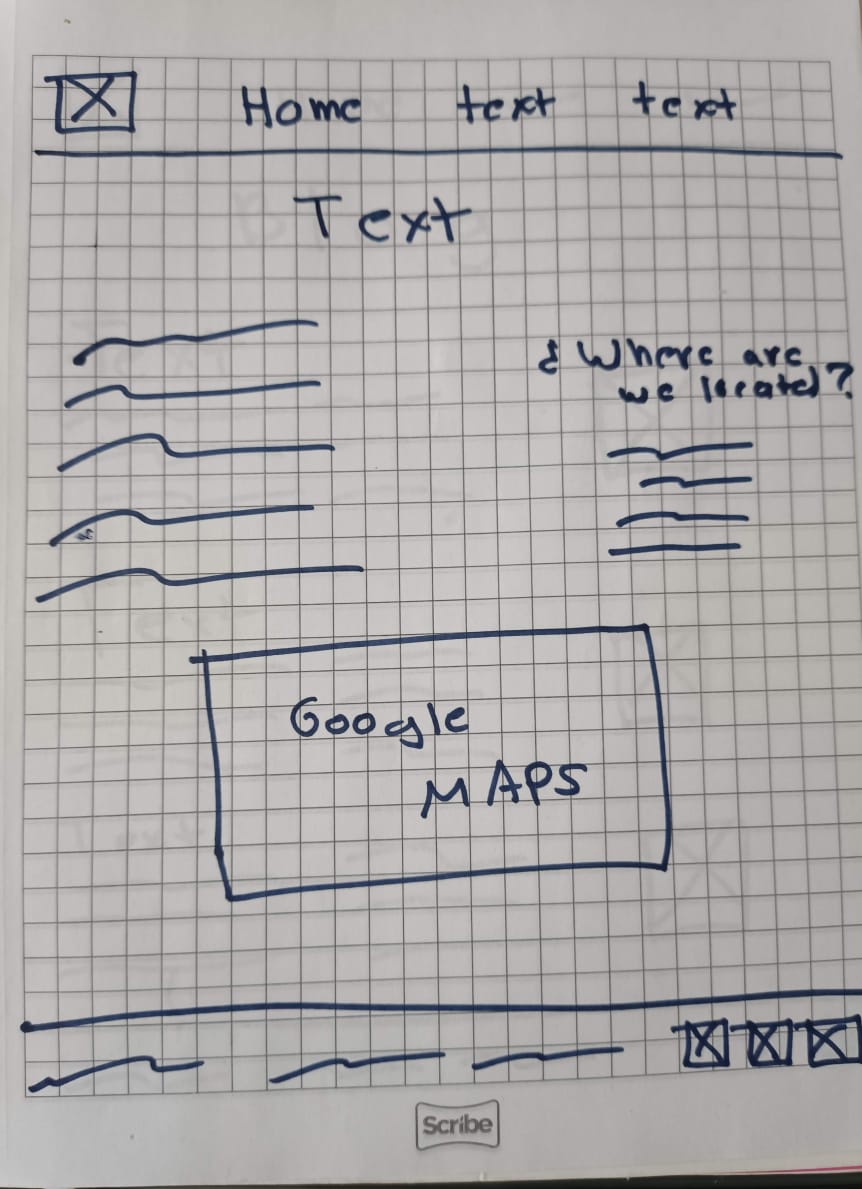 Home text text
Text
¿ Where are
we located?
Google
MAPS
Scribe